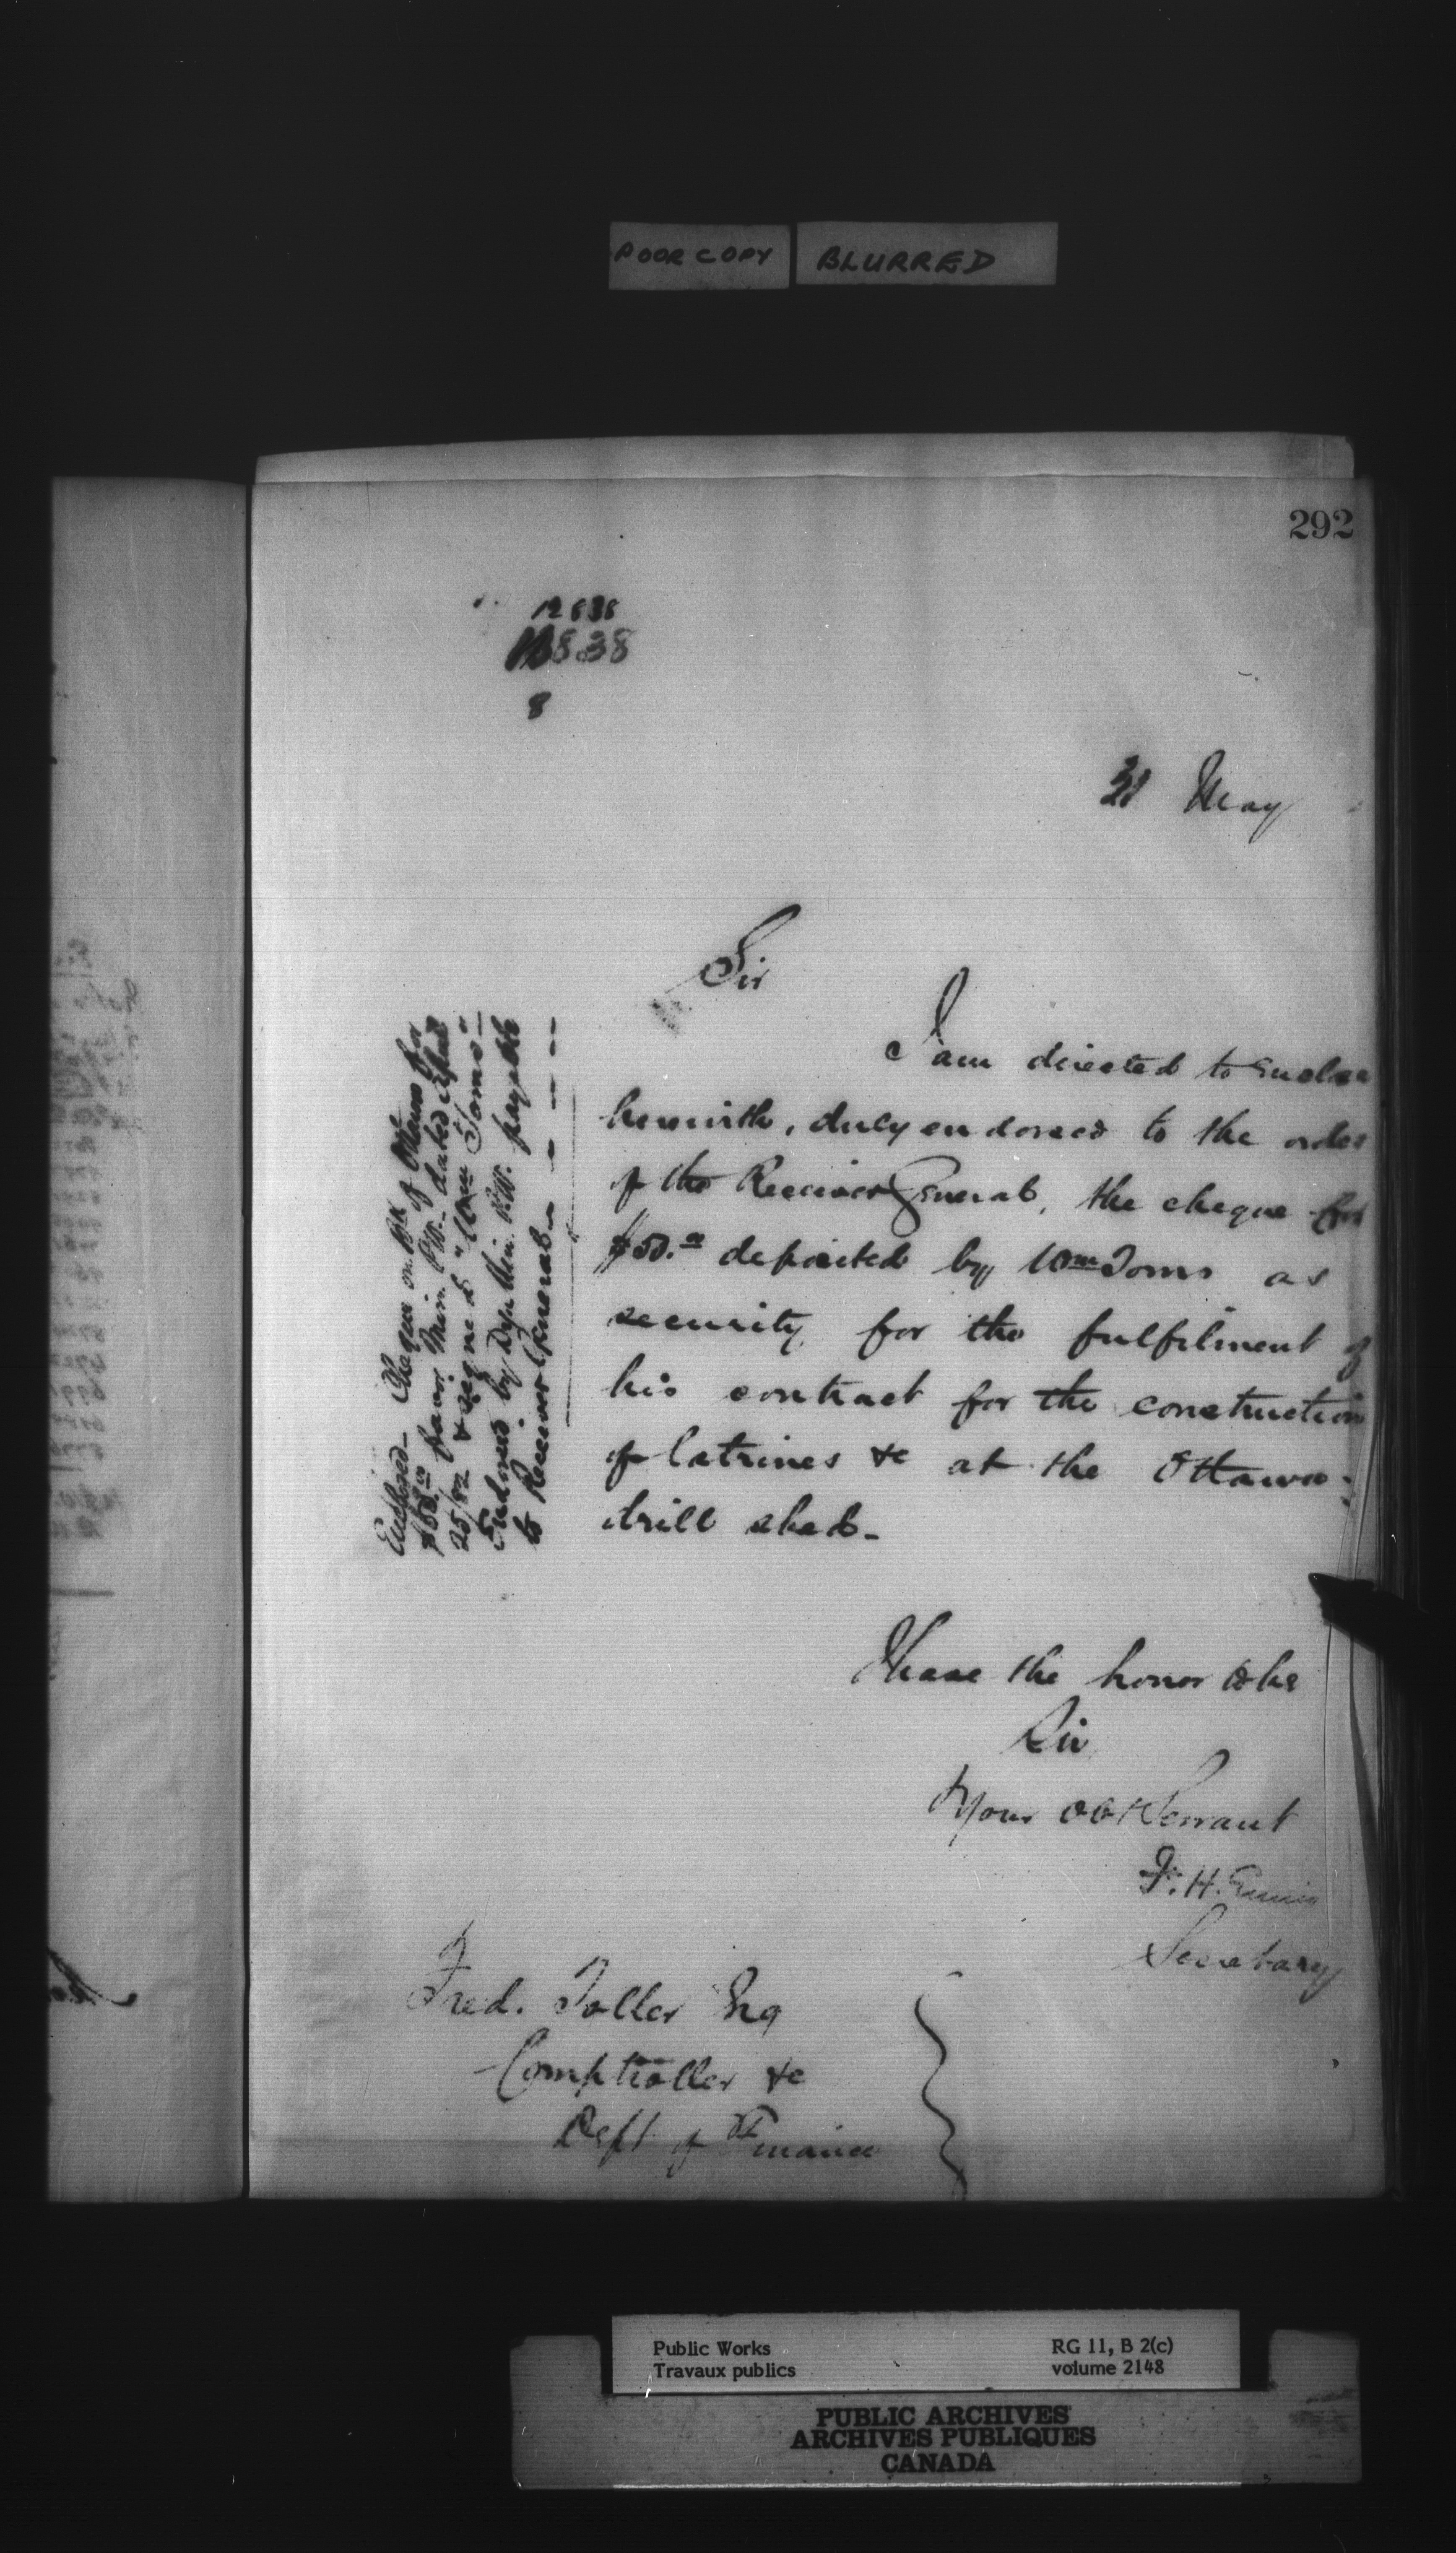 POOR COPY BLURRED
292
12838
838
8
31 May
Sir
I am directed to enclose
herewith, duly endorsed to the order
of the Receiver General, the cheque for
$50.00 deposited by Wm Toms as
security for the fulfilment of
his contract for the construction
of latrines &c at the Ottawa
drill shed.
Enclosed - Cheque on Bk of Ottawa for
$50.00 favor Min. P.W. dated April
25/82 & signed "Wm Toms"
Endorsed by Dep Min. P.W. payable
to Receiver General
I have the honor to be
Sir
Your obt Servant
F. H. Ennis
Secretary
Fred. Toller Esq
Comptroller &c
Dept of Finance
Public Works
Travaux publics
RG 11, B 2(c)
volume 2148
PUBLIC ARCHIVES
ARCHIVES PUBLIQUES
CANADA